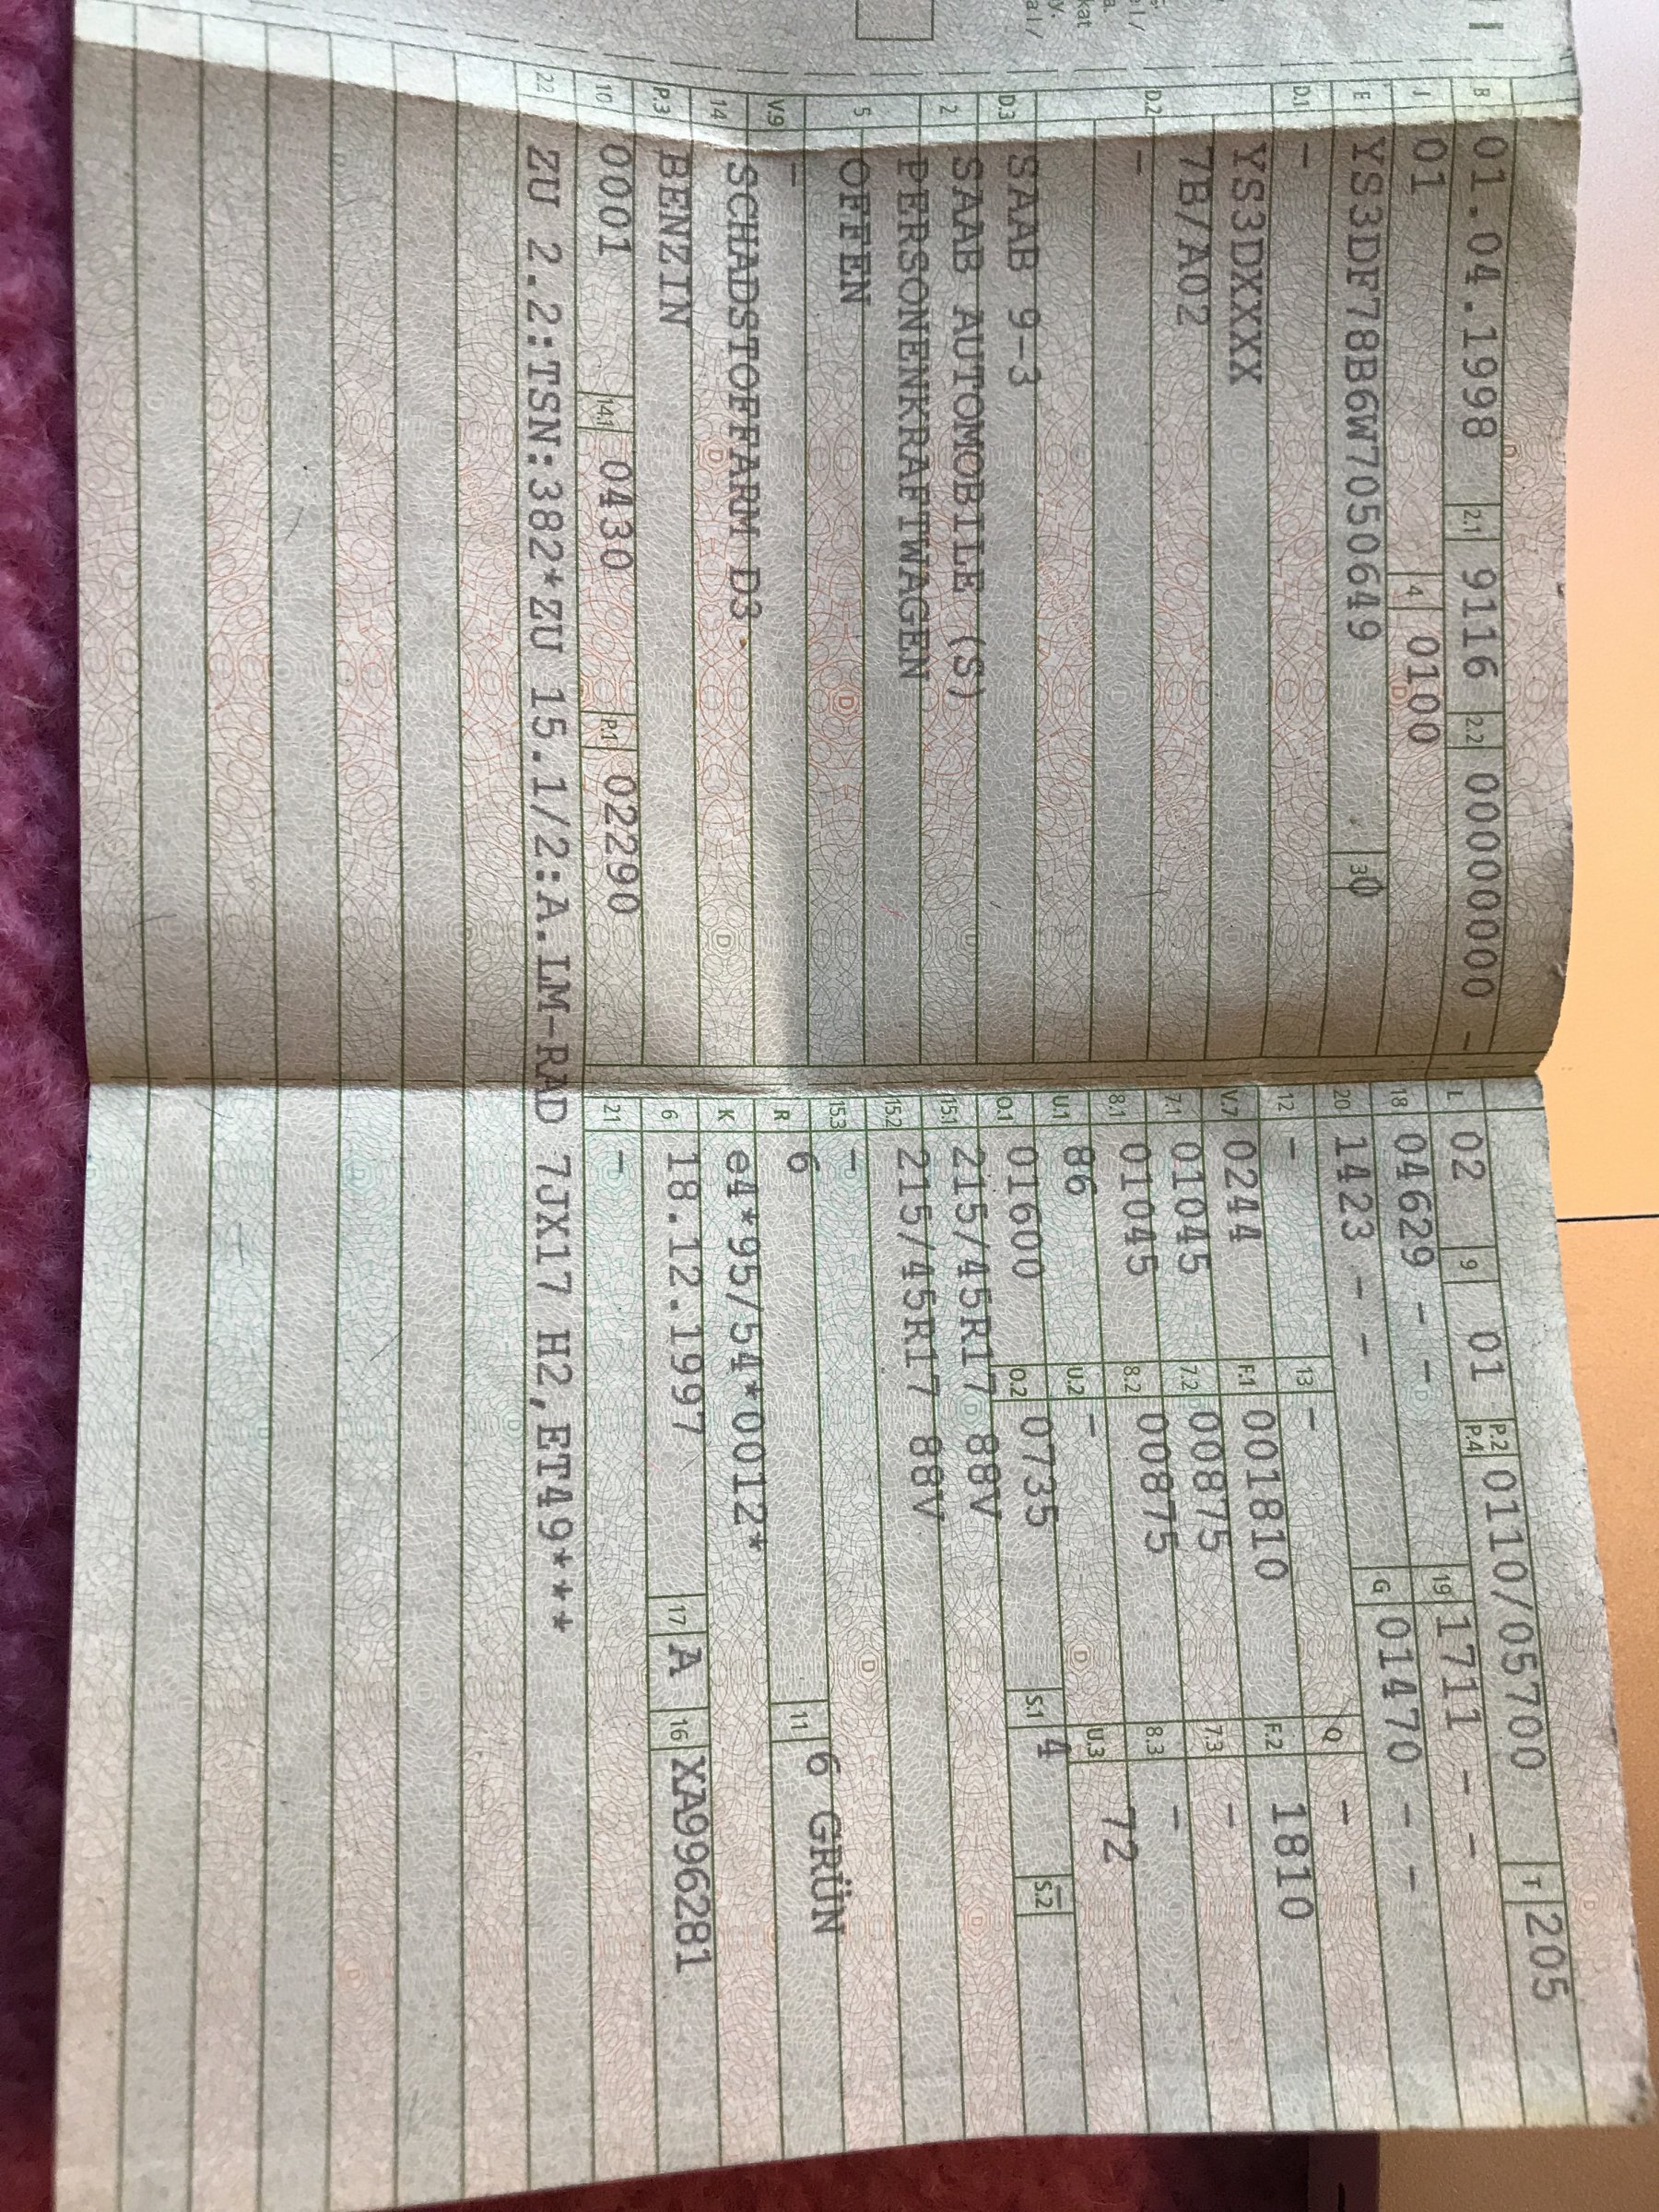 I
B 01.04.1998 2.1 9116 2.2 00000000 -
J 01 4 0100
E YS3DF78B6W7050649 3 0
D.1 -
D.2 YS3DXXXX
7B/A02
-
D.3 SAAB 9-3
2 SAAB AUTOMOBILE (S)
5 PERSONENKRAFTWAGEN
OFFEN
V.9 -
14 SCHADSTOFFARM D3
P.3 BENZIN
10 0001 14.1 0430 P.1 02290
L 02 9 01 P.2 P.4 0110/05700 T 205
18 04629 - - 19 1711 - -
20 1423 - - G 01470 - -
12 - 13 - Q -
V.7 0244 F.1 001810 F.2 1810
7.1 01045 7.2 00875 7.3 -
8.1 01045 8.2 00875 8.3 -
U.1 86 U.2 - U.3 72
O.1 01600 O.2 0735 S.1 4 S.2 -
15.1 215/45R17 88V
15.2 215/45R17 88V
15.3 -
R 6 11 6 GRÜN
K e4*95/54*0012*
6 18.12.1997 17 A 16 XA996281
21 -
22 ZU 2.2:TSN:382*ZU 15.1/2:A.LM-RAD 7JX17 H2,ET49***